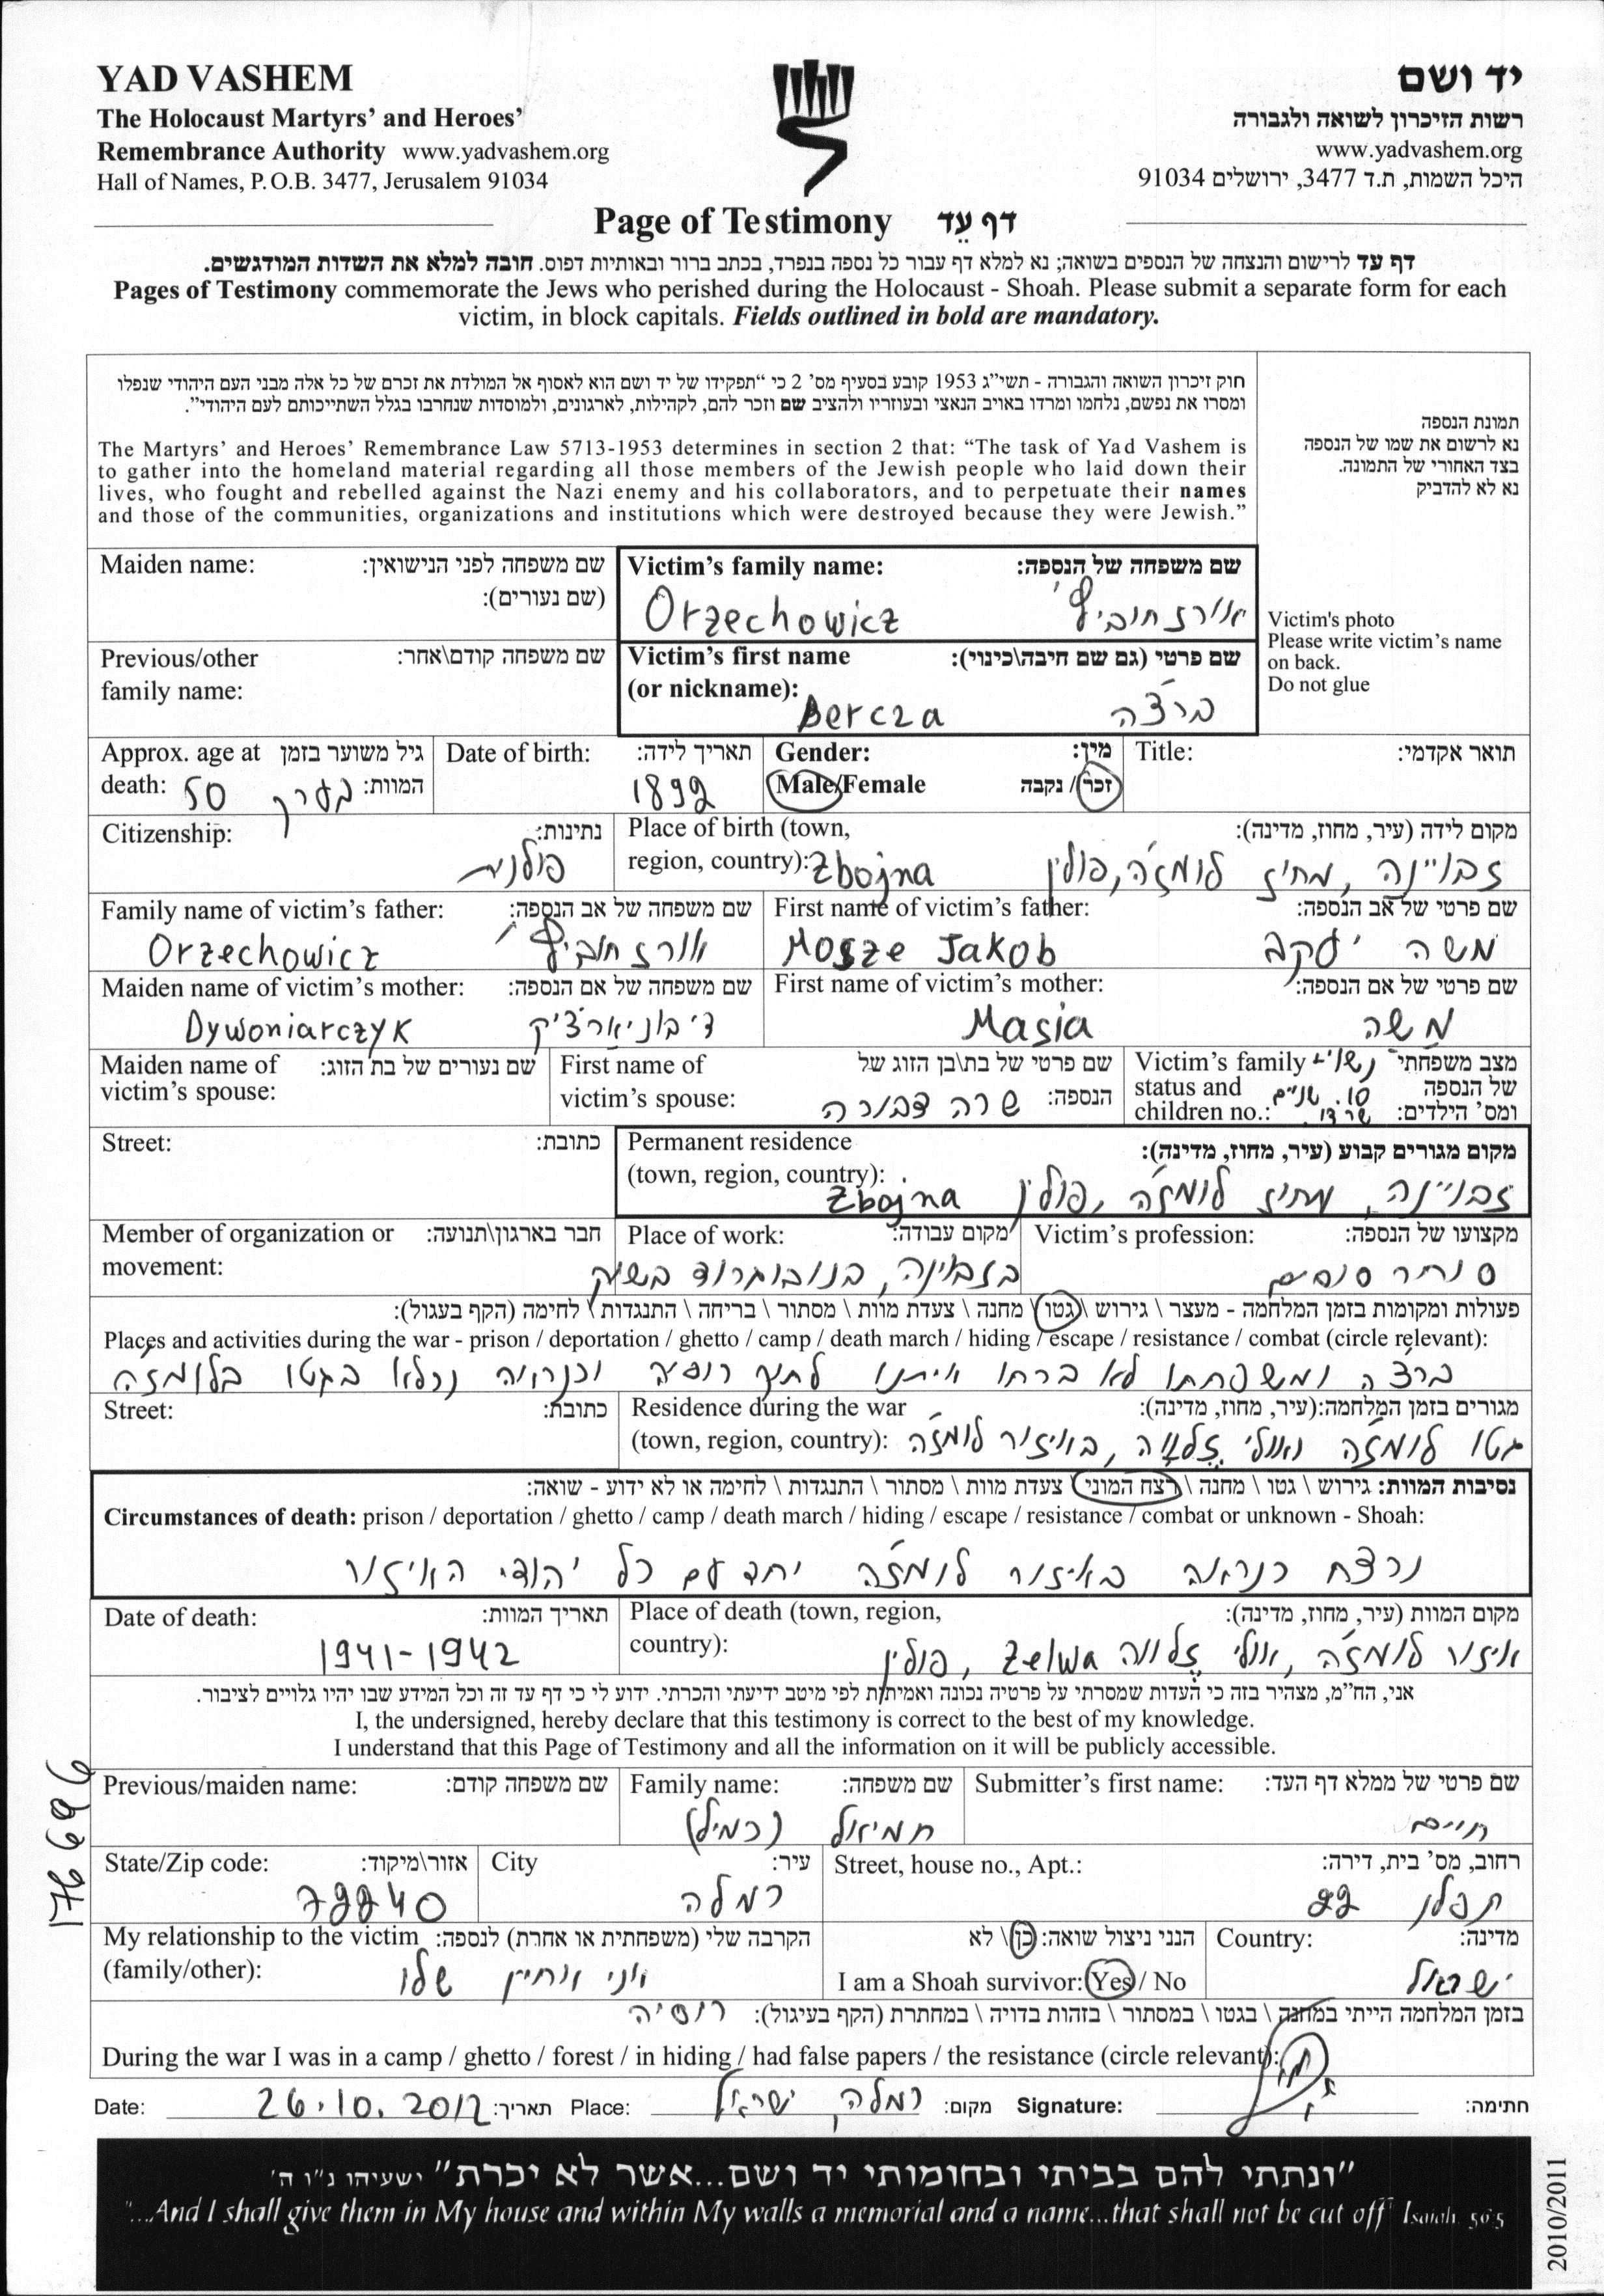 YAD VASHEM
The Holocaust Martyrs' and Heroes'
Remembrance Authority www.yadvashem.org
Hall of Names, P.O.B. 3477, Jerusalem 91034
יד ושם
רשות הזיכרון לשואה ולגבורה
www.yadvashem.org
היכל השמות, ת.ד 3477, ירושלים 91034
Page of Testimony דף עֵד
דף עד לרישום והנצחה של הנספים בשואה; נא למלא דף עבור כל נספה בנפרד, בכתב ברור ובאותיות דפוס. חובה למלא את השדות המודגשים.
Pages of Testimony commemorate the Jews who perished during the Holocaust - Shoah. Please submit a separate form for each
victim, in block capitals. Fields outlined in bold are mandatory.
חוק זיכרון השואה והגבורה - תשי"ג 1953 קובע בסעיף מס' 2 כי "תפקידו של יד ושם הוא לאסוף אל המולדת את זכרם של כל אלה מבני העם היהודי שנפלו
ומסרו את נפשם, נלחמו ומרדו באויב הנאצי ובעוזריו ולהציב שם וזכר להם, לקהילות, לארגונים, ולמוסדות שנחרבו בגלל השתייכותם לעם היהודי".
The Martyrs' and Heroes' Remembrance Law 5713-1953 determines in section 2 that: "The task of Yad Vashem is
to gather into the homeland material regarding all those members of the Jewish people who laid down their
lives, who fought and rebelled against the Nazi enemy and his collaborators, and to perpetuate their names
and those of the communities, organizations and institutions which were destroyed because they were Jewish."
תמונת הנספה
נא לרשום את שמו של הנספה
בצד האחורי של התמונה.
נא לא להדביק
Victim's photo
Please write victim's name
on back.
Do not glue
Maiden name: שם משפחה לפני הנישואין:
(שם נעורים):
Victim's family name: שם משפחה של הנספה:
Orzechowicz אורזחוביץ'
Previous/other שם משפחה קודם\אחר:
family name:
Victim's first name שם פרטי (גם שם חיבה\כינוי):
(or nickname):
Bercza ברצ'ה
Approx. age at גיל משוער בזמן
death: 50 בערך המוות:
Date of birth: תאריך לידה:
1892
Gender: מין:
Male/Female זכר / נקבה
Title: תואר אקדמי:
Citizenship: נתינות:
פולנית
Place of birth (town, מקום לידה (עיר, מחוז, מדינה):
region, country): Zbojna זבויינה, מחוז לומז'ה, פולין
Family name of victim's father: שם משפחה של אב הנספה:
Orzechowicz אורזחוביץ'
First name of victim's father: שם פרטי של אב הנספה:
Mosze Jakob משה יעקב
Maiden name of victim's mother: שם משפחה של אם הנספה:
Dywoniarczyk דיבוניארצ'יק
First name of victim's mother: שם פרטי של אם הנספה:
Masia משה
Maiden name of שם נעורים של בת הזוג:
victim's spouse:
First name of שם פרטי של בת\בן הזוג של
victim's spouse: שרה דבורה הנספה:
Victim's family נשוי + מצב משפחתי
status and של הנספה
10. שניים
children no.: שרדו ומס' הילדים:
Street: כתובת:
Permanent residence מקום מגורים קבוע (עיר, מחוז, מדינה):
(town, region, country):
Zbojna זבויינה, מחוז לומז'ה, פולין
Member of organization or חבר בארגון\תנועה:
movement:
Place of work: מקום עבודה:
בזבוינה, בנובוגרוד בשוק
Victim's profession: מקצועו של הנספה:
סוחר סוסים
פעולות ומקומות בזמן המלחמה - מעצר \ גירוש \ גטו \ מחנה \ צעדת מוות \ מסתור \ בריחה \ התנגדות \ לחימה (הקף בעגול):
Places and activities during the war - prison / deportation / ghetto / camp / death march / hiding / escape / resistance / combat (circle relevant):
ברצ'ה ומשפחתו לא ברחו איתנו לתוך רוסיה וכנראה נכלאו בגטו בלומז'ה
Street: כתובת:
Residence during the war מגורים בזמן המלחמה:(עיר, מחוז, מדינה):
(town, region, country): גטו לומז'ה ואולי זלווה, באיזור לומז'ה
נסיבות המוות: גירוש \ גטו \ מחנה \ רצח המוני \ צעדת מוות \ מסתור \ התנגדות \ לחימה או לא ידוע - שואה:
Circumstances of death: prison / deportation / ghetto / camp / death march / hiding / escape / resistance / combat or unknown - Shoah:
נרצח כנראה באיזור לומז'ה יחד עם כל יהודי האיזור
Date of death: תאריך המוות:
1941-1942
Place of death (town, region, מקום המוות (עיר, מחוז, מדינה):
country): איזור לומז'ה, אולי זלווה Zelwa, פולין
אני, הח"מ, מצהיר בזה כי העדות שמסרתי על פרטיה נכונה ואמיתית לפי מיטב ידיעתי והכרתי. ידוע לי כי דף עד זה וכל המידע שבו יהיו גלויים לציבור.
I, the undersigned, hereby declare that this testimony is correct to the best of my knowledge.
I understand that this Page of Testimony and all the information on it will be publicly accessible.
Previous/maiden name: שם משפחה קודם:
Family name: שם משפחה:
חמיאל (כמיל)
Submitter's first name: שם פרטי של ממלא דף העד:
חיים
State/Zip code: אזור\מיקוד:
City עיר:
רמלה
Street, house no., Apt.: רחוב, מס' בית, דירה:
22
My relationship to the victim הקרבה שלי (משפחתית או אחרת) לנספה:
(family/other): אני אחיין שלו
הנני ניצול שואה: כן \ לא
I am a Shoah survivor: Yes / No
Country: מדינה:
ישראל
בזמן המלחמה הייתי במחנה \ בגטו \ במסתור \ בזהות בדויה \ במחתרת (הקף בעיגול): רוסיה
During the war I was in a camp / ghetto / forest / in hiding / had false papers / the resistance (circle relevant):
Date: 26.10.2012 תאריך: Place: רמלה, ישראל מקום: Signature: חתימה:
"ונתתי להם בביתי ובחומותי יד ושם...אשר לא יכרת" ישעיהו נ"ו ה'
"...And I shall give them in My house and within My walls a memorial and a name...that shall not be cut off" Isaiah 56:5
2010/2011